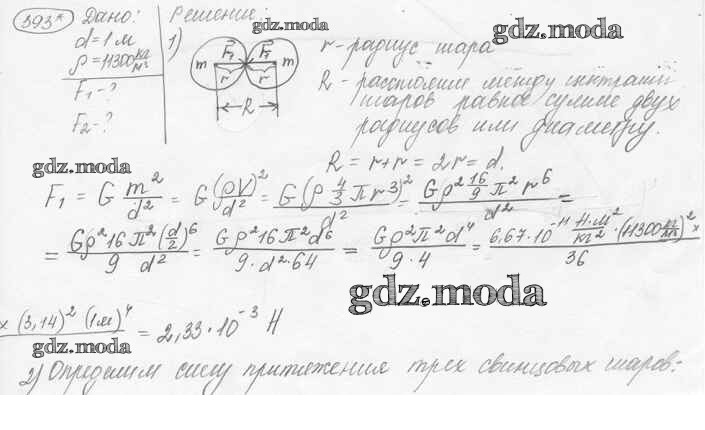 393* Дано: Решение:
gdz.moda
gdz.moda
d = 1 м
ρ = 11300 кг/м³
F₁ - ?
F₂ - ?
1)
F₁ F₁
m m
r r
R
r - радиус шара
R - расстояние между центрами
шаров равное сумме двух
радиусов или диаметру.
R = r + r = 2r = d.
gdz.moda
F₁ = G m²/d² = G (ρV)²/d² = G (ρ 4/3 π r³)²/d² = Gρ² 16/9 π² r⁶/d² =
= Gρ² 16 π² (d/2)⁶/9 d² = Gρ² 16 π² d⁶/9 · d² · 64 = Gρ² π² d⁴/9 · 4 = 6,67 · 10⁻¹¹ Н·м²/кг² · (11300 кг/м³)² ×/36
gdz.moda
× (3,14)² (1м)⁴ = 2,33 · 10⁻³ Н
gdz.moda
2) Определим силу притяжения трех свинцовых шаров: